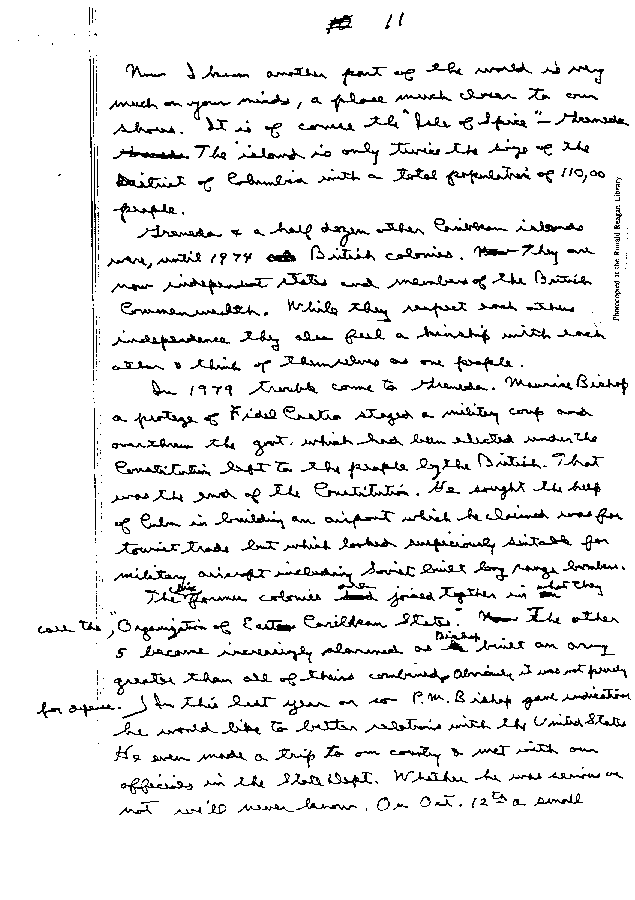 11
Now I know another part of the world is very
much on your minds, a place much closer to our
shores. It is of course the "Isle of Spice" – Grenada
The island is only twice the size of the
District of Columbia with a total population of 110,00
people.
Grenada & a half dozen other Caribbean islands
were, until 1974 British colonies. They are
now independent states and members of the British
Commonwealth. While they respect each others
independence they also feel a kinship with each
other & think of themselves as one people.
In 1979 trouble came to Grenada. Maurice Bishop
a protege of Fidel Castro staged a military coup and
overthrew the govt. which had been elected under the
Constitution left to the people by the British. That
was the end of the Constitution. He sought the help
of Cuba in building an airport which he claimed was for
tourist trade but which looked suspiciously suitable for
military aircraft including Soviet built long range bombers.
The six former colonies are joined together in what they
call the, "Organization of East Caribbean States". The other
5 became increasingly alarmed as Bishop built an army
greater than all of theirs combined. Obviously it was not purely
for defense. In this last year or so P.M. Bishop gave indication
he would like to better relations with the United States
He even made a trip to our country & met with our
officials in the State Dept. Whether he was serious or
not we'll never know. On Oct. 12th a small
Photocopied at the Ronald Reagan Library